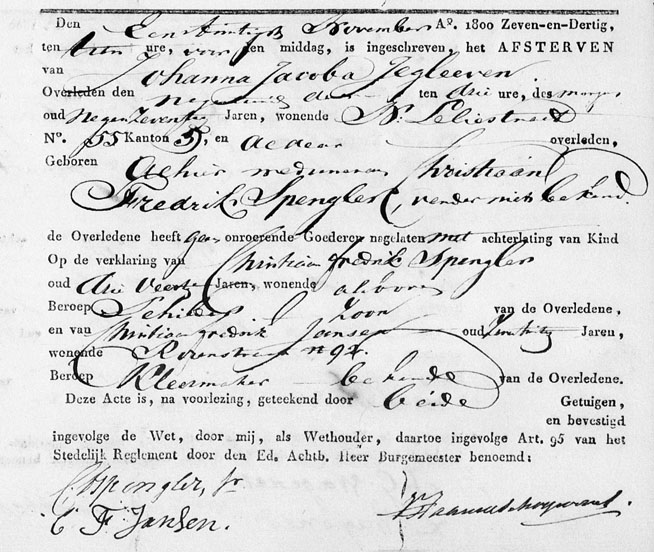 Den Een en twintigste November Aº. 1800 Zeven-en-Dertig,
ten tien ure, voor den middag, is ingeschreven, het AFSTERVEN
van Johanna Jacoba Jegleeven.
Overleden den negentiende dezer ten drie ure, des morgens
oud Negen Zeventig Jaren, wonende Nw: Leliestraat
Nº. 55 Kanton 35, en aldaar overleden,
Geboren
Alhier weduwe van Christiaan
Fredrik Spengler, verder niets bekend.
de Overledene heeft geen onroerende Goederen nagelaten met achterlating van Kind
Op de verklaring van Christiaan Fredrik Spengler
oud drie Veertig Jaren, wonende alvoren
Beroep Schilder Zoon van de Overledene,
en van Christiaan Fredrik Jansen oud Jaren,
wonende Rozenstraat nº 92.
Beroep Kleermaker bekende van de Overledene.
Deze Acte is, na voorlezing, geteekend door beide Getuigen,
en bevestigd
ingevolge de Wet, door mij, als Wethouder, daartoe ingevolge Art. 95 van het
Stedelijk Reglement door den Ed. Achtb. Heer Burgemeester benoemd:
C. F. Spengler, Jr
C. F. Jansen.